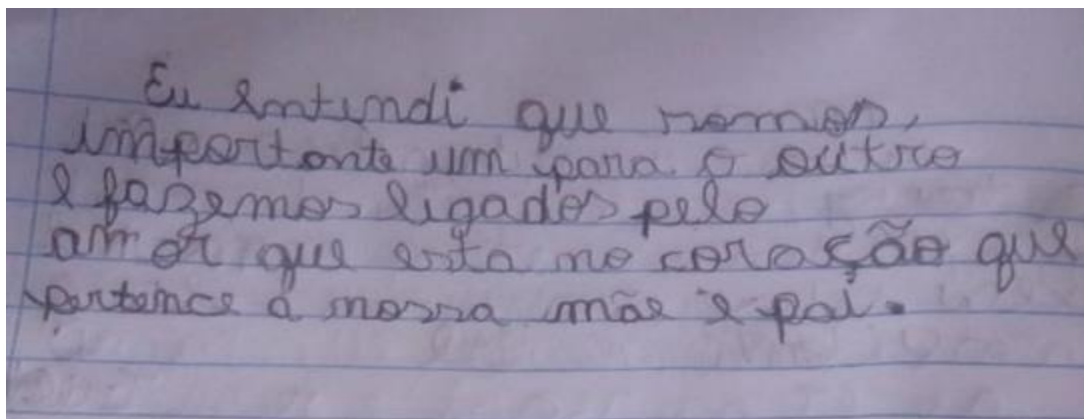 Eu entendi que somos,
importante um para o outro
e fazemos ligados pelo
amor que esta no coração que
pertence a nossa mãe e pai.